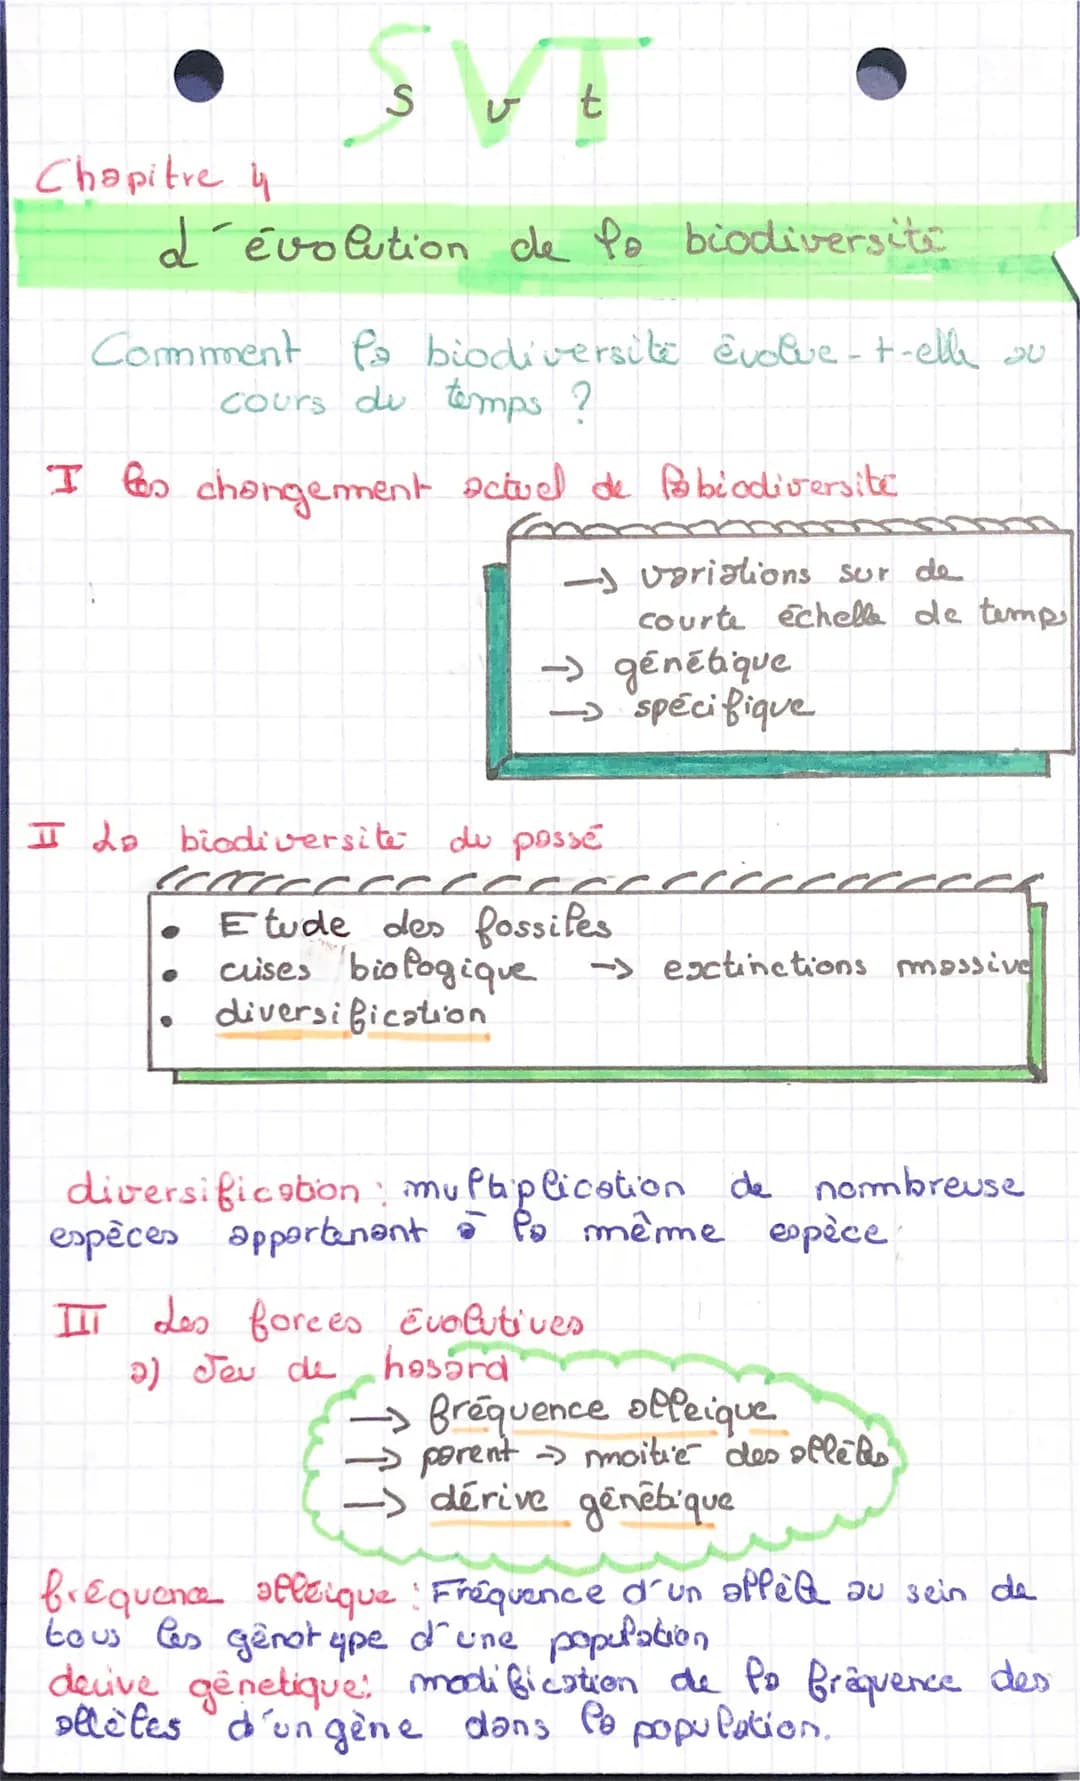 SVT
s v t
Chapitre 4
L'évolution de la biodiversité
Comment la biodiversité évolue-t-elle au
cours du temps ?
I les changement actuel de la biodiversité
→ variations sur de
courte échelle de temps
→ génétique
→ spécifique
II La biodiversité du passé
• Etude des fossiles
• crises biologique → exctinctions massive
• diversification
diversification : multiplication de nombreuse
espèces appartenant à la même espèce
III Les forces évolutives
a) Jeu de hasard
→ fréquence alleique
→ parent → moitié des allèles
→ dérive génétique
fréquence alléique : Fréquence d'un allèle au sein de
tous les génotype d'une population
derive génetique: modification de la fréquence des
allèles d'un gène dans la population.